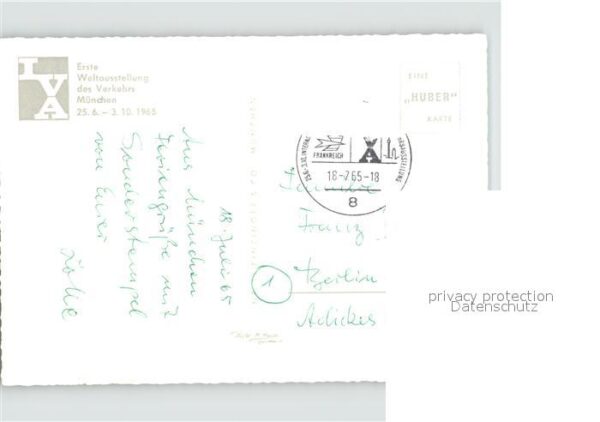 IVA
Erste
Weltausstellung
des Verkehrs
München
25. 6. – 3. 10. 1965
EINE
„HUBER"
KARTE
FRANKREICH
18-7 65-18
8
18. Juli 65
Aus München
Feriengrüße mit
Sonderstempel
von Eurer
Familie
Franz
1
Berlin
Adickes
privacy protection
Datenschutz